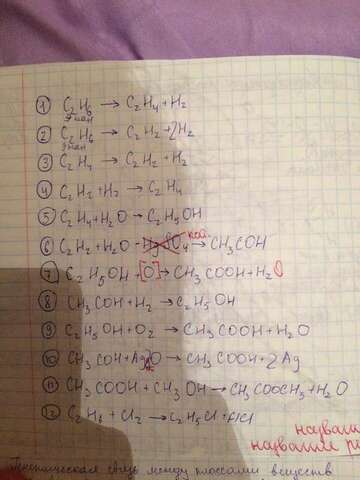 1) C2H6 → C2H4 + H2
этан
2) C2H6 → C2H2 + 2H2
этан
3) C2H4 → C2H2 + H2
4) C2H2 + H2 → C2H4
5) C2H4 + H2O → C2H5OH
6) C2H2 + H2O - HgSO4 кат. → CH3COH
7) C2H5OH + [O] → CH3COOH + H2O
8) CH3COH + H2 → C2H5OH
9) C2H5OH + O2 → CH3COOH + H2O
10) CH3COH + Ag2O → CH3COOH + 2Ag
11) CH3COOH + CH3OH → CH3COOCH3 + H2O
12) C2H6 + Cl2 → C2H5Cl + HCl
назван
название ре
Генетическая связь между классами веществ